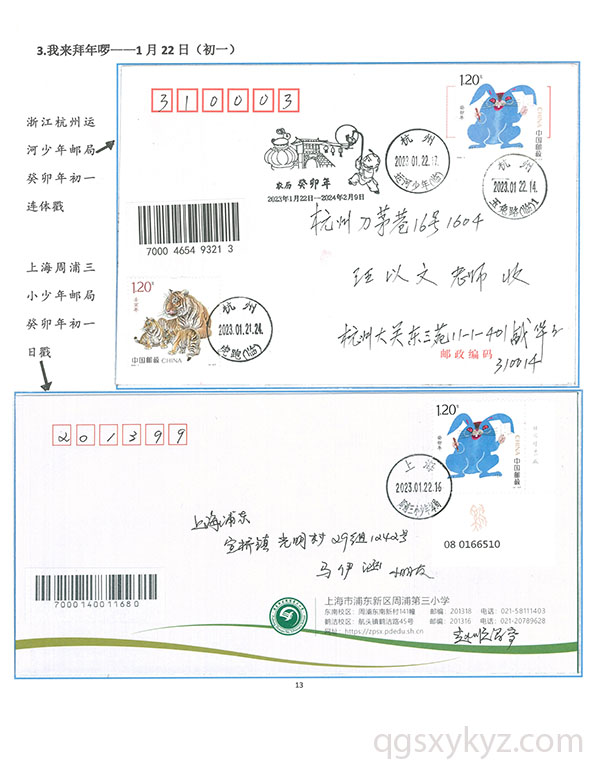 3.我来拜年啰——1月22日（初一）
浙江杭州运
河少年邮局
癸卯年初一
连体戳
上海周浦三
小少年邮局
癸卯年初一
日戳
310003
农历 癸卯年
2023年1月22日---2024年2月9日
杭州
2023.01.22.17
运河少年(临)
120分
癸卯年
中国邮政 CHINA
杭州
2023.01.22.14
7000 4654 9321 3
杭州刀茅巷16号1604
汪以文老师收
杭州大关东三苑11-1-401
邮政编码
310014
120分
壬寅年
中国邮政 CHINA
杭州
2023.01.21.24
201399
120分
癸卯年
中国邮政 CHINA
上海
2023.01.22.16
08 0166510
上海浦东
宣桥镇光明村29组1242号
马伊涵 小朋友
7000140011680
上海市浦东新区周浦第三小学
东南校区：周浦东南新村141幢 邮编：201318 电话：021-58111403
鹤洁校区：航头镇鹤洁路45号 邮编：201316 电话：021-20789628
网址：https://zpsx.pdedu.sh.cn
13
qgsxykyz.com